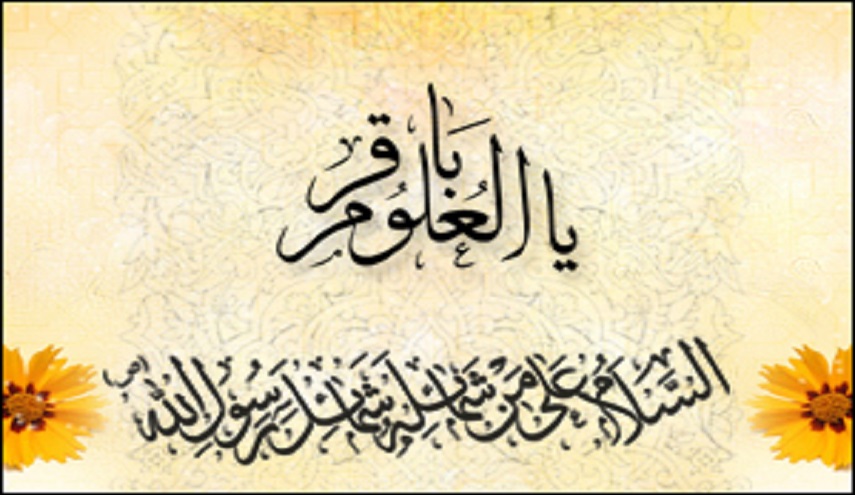 يا باقر العلوم
السَّلامُ عَلی مَن شَمائِلُه شَمائِل رَسُولِ الله (ص)